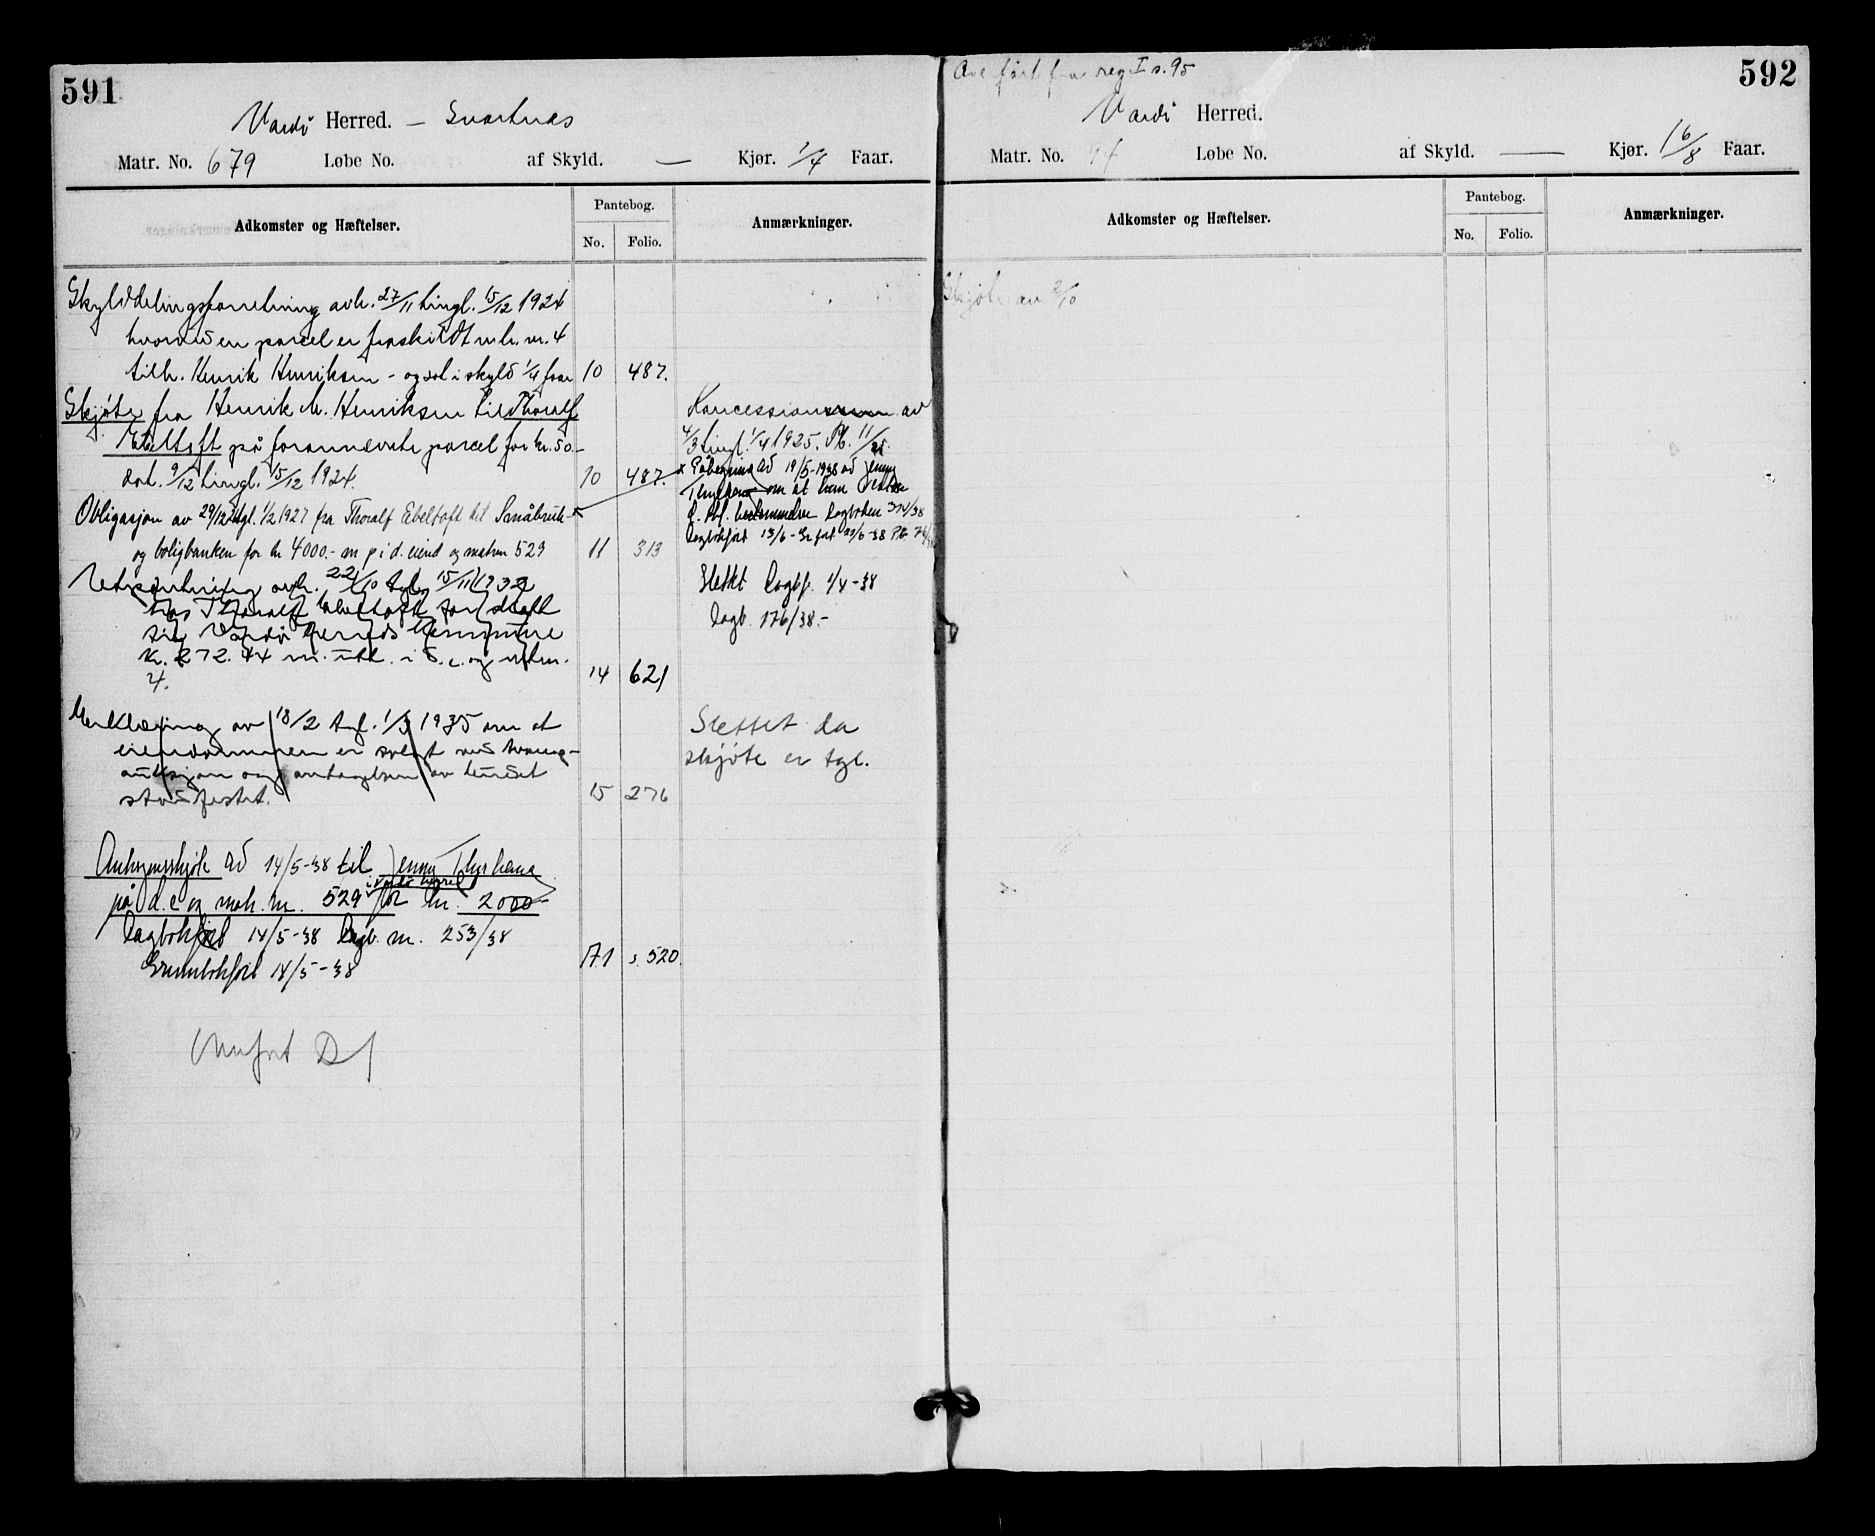 591
Vardö Herred. – Svartnes
Matr. No. 679 Løbe No. af Skyld. — Kjør. 1/4 Faar.
Adkomster og Hæftelser.
Pantebog.
No. Folio.
Anmærkninger.
Skylddelingsforretning avh. 27/11 tingl. 15/12 1924
hvorved en parcel er fraskildt mtr. nr. 4
tilh. Henrik Henriksen – og sat i skyld 1/4 faar 10 487.
Skjöte fra Henrik M. Henriksen til Thoralf
Ebeltoft på forannevnte parcel for kr. 50.-
dat. 9/12 tingl. 15/12 1924. 10 487.
Obligasjon av 29/12 tgl. 1/2 1927 fra Thoralf Ebeltoft til Småbruk-
og boligbanken for kr 4000.- m p i d. eiend og matrn 529 11 313
Utpantning avh. 22/10 tgl. 15/11 1932
hos Thoralf Ebeltoft for skatt
til Vardö herreds kommune
kr. 272.44 m. utl. i d. e. og mtrn.
4. 14 621
Erklæring av 18/2 tgl. 1/3 1935 om at
eiendommen er solgt ved tvang-
auksjon og antagelsen av budet
stadfestet. 15 276
Auksjonsskjöte ad 14/5-38 til Jenny Thyrhaug
på d. e og matr. nr. 529 i Vardö herred for kr. 2000-
Dagbokfört 14/5-38 Dagb. nr. 253/38
Grunnbokfört 14/5-38 171 s. 520.
Konsesjon av
4/3 tingl. 1/4 1925. Pb. 11/25.
x Påtegning ad 19/5-1938 ad Jenny
Thyrhaug om at hun
d. obl. bestemmelser Dagboken 314/38
Dagbokfört 13/6- Gr.fört 20/6-38 P.B.
Slettet Dagbf. 1/4-38
Dagb. 176/38.-
Slettet da
skjöte er tgl.
592
Overfört fra reg I s. 95
Vardö Herred.
Matr. No. 94 Løbe No. af Skyld. — Kjør. 1 6/8 Faar.
Adkomster og Hæftelser.
Pantebog.
No. Folio.
Anmærkninger.
Skjöte av 2/10